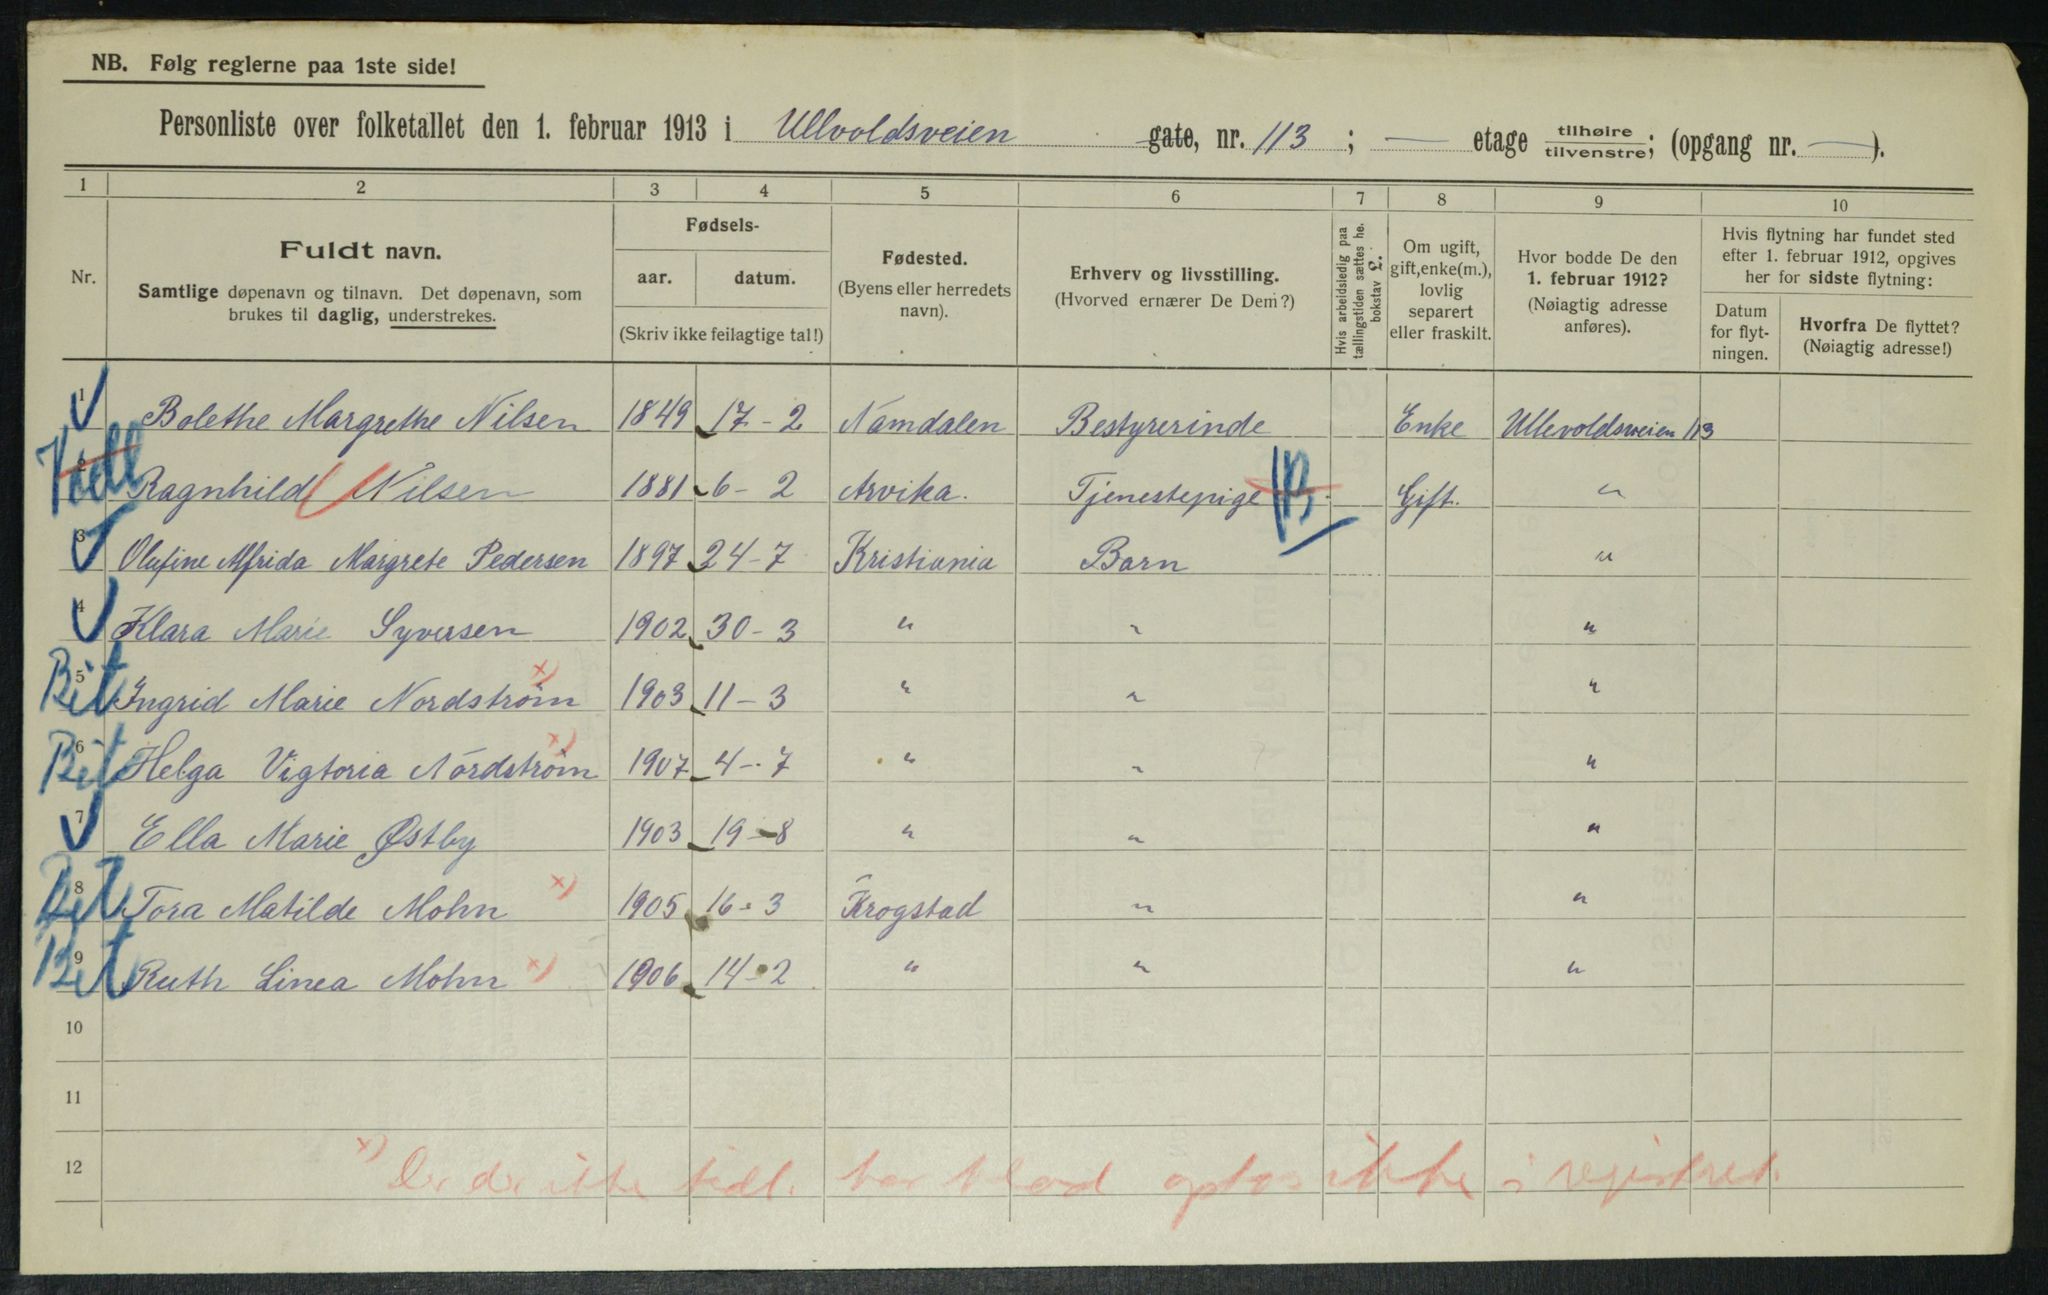 NB. Følg reglerne paa 1ste side!
Personliste over folketallet den 1. februar 1913 i Ullvoldsveien gate, nr. 113 ; — etage tilhøire tilvenstre; (opgang nr. — ).
1 2 3 4 5 6 7 8 9 10
Nr.
Fuldt navn.
Samtlige døpenavn og tilnavn. Det døpenavn, som
brukes til daglig, understrekes.
Fødsels-
aar. datum.
(Skriv ikke feilagtige tal!)
Fødested.
(Byens eller herredets
navn).
Erhverv og livsstilling.
(Hvorved ernærer De Dem?)
Hvis arbeidsledig paa
tællingstiden sættes her
bokstav
Om ugift,
gift, enke(m.),
lovlig
separert
eller fraskilt.
Hvor bodde De den
1. februar 1912?
(Nøiagtig adresse
anføres).
Hvis flytning har fundet sted
efter 1. februar 1912, opgives
her for sidste flytning:
Datum
for flyt-
ningen.
Hvorfra De flyttet?
(Nøiagtig adresse!)
1 Bolethe Margrethe Nilsen 1849 17-2 Namdalen Bestyrerinde Enke Ullevoldsveien 113
2 Ragnhild Nilsen 1881 6-2 Arvika. Tjenestepige Gift. "
3 Olufine Alfrida Margrete Pedersen 1897 24-7 Kristiania Barn "
4 Klara Marie Syversen 1902 30-3 " " "
Bit 5 Ingrid Marie Nordstrøm x) 1903 11-3 " " "
Bit 6 Helga Vigtoria Nordstrøm x) 1907 4-7 " " "
7 Ella Marie Østby 1903 19-8 " " "
Bit 8 Tora Matilde Mohn x) 1905 16-3 Krogstad " "
Bit 9 Ruth Linea Mohn x) 1906 14-2 " " "
10
11
12
x) Da de ikke tidl. har blad optas ikke i registret.